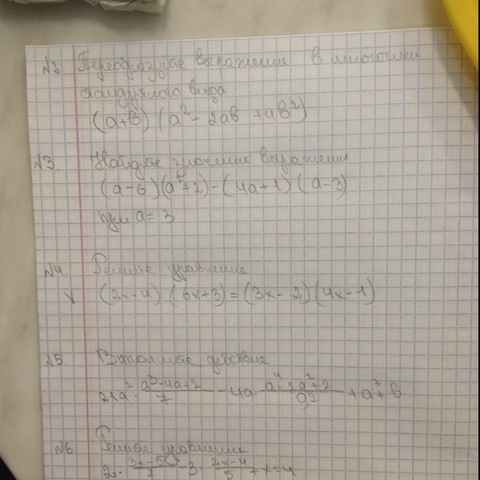 №2 Преобразуйте выражение в многочлен
стандартного вида
(a+b) (a² - 2ab + 4b²)
№3. Найдите значение выражения
(a-6)(a²+2)-(4a+1)(a-3)
при a = 3
№4. Решите уравнение
(2x-4) (6x+3) = (3x-2)(4x-1)
№5 Выполните действие
21a² · (a³-4a+2)/7 - 4a · + a³ + 6
№6 Решите уравнение
2 · (3x-5)/7 - 3 · (2x-4)/5 + x = 4